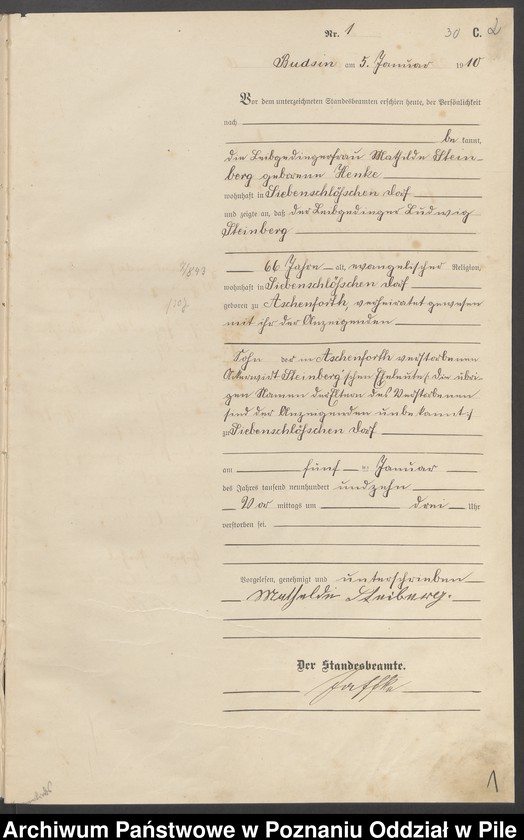 Nr. 1 30 C. 2
Budsin am 5. Januar 1910
Vor dem unterzeichneten Standesbeamten erschien heute, der Persönlichkeit
nach
be kannt,
die Leibgedingerfrau Mathilde Stein-
berg geborene Henke
wohnhaft in Siebenschlößchen Dorf
und zeigte an, daß der Leibgedinger Ludwig
Steinberg
66 Jahre alt, evangelischer Religion,
wohnhaft in Siebenschlößchen Dorf
geboren zu Aschenforth, verheiratet gewesen
mit ihr der Anzeigenden
Sohn der in Aschenforth verstorbenen
Ackerwirt Steinberg'schen Eheleute (die übri-
gen Namen der Eltern des Verstorbenen
sind der Anzeigenden unbekannt)
zu Siebenschlößchen Dorf
am fünf ten Januar
des Jahres tausend neunhundert und zehn
Vor mittags um drei Uhr
verstorben sei.
Vorgelesen, genehmigt und unterschrieben
Mathilde Steiberg.
Der Standesbeamte.
Jaffke
1
Archiwum Państwowe w Poznaniu Oddział w Pile